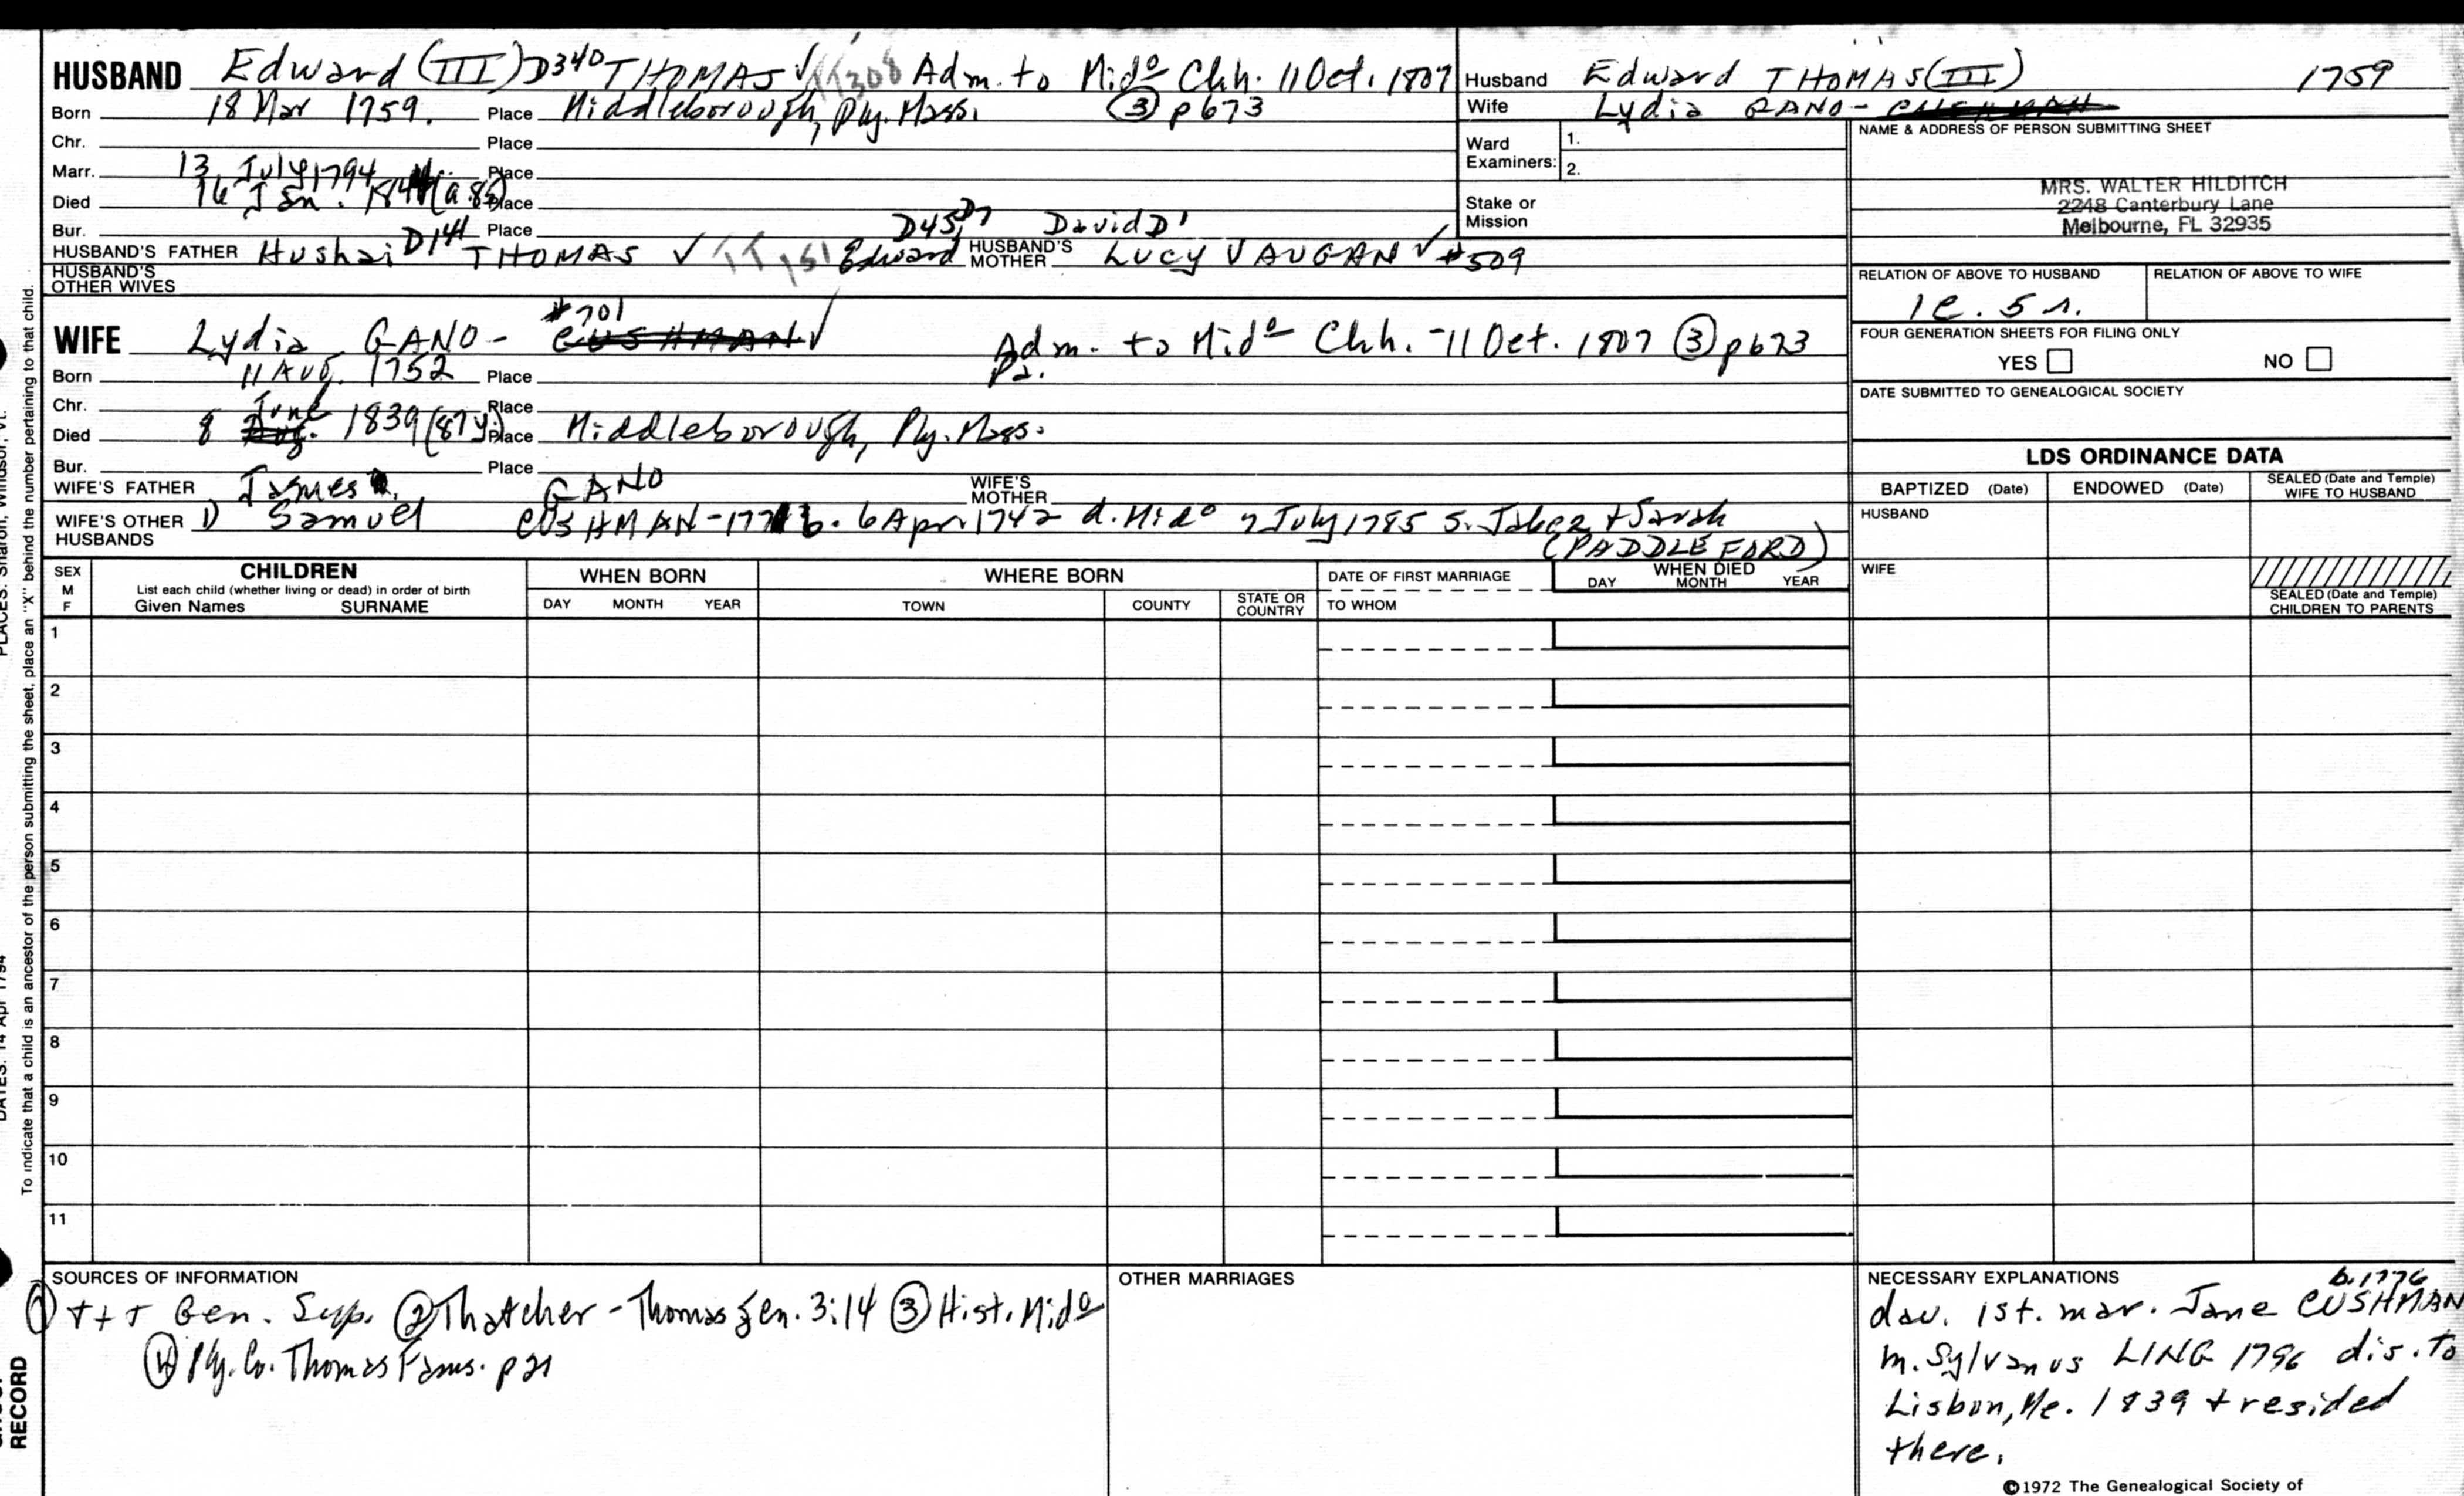 HUSBAND Edward (III) D340 THOMAS ✓ TT308 Adm. to Mido Chh. 11 Oct. 1807
Born 18 Mar 1759. Place Middleborough, Ply. Mass. ③ p673
Chr. Place
Marr. 13 July 1794 Place
Died 16 Jan. Place
Bur. Place D45, D7 David D1
HUSBAND'S FATHER Hushai D141 THOMAS ✓ TT,151 Edward HUSBAND'S MOTHER LUCY VAUGAN ✓ #509
HUSBAND'S OTHER WIVES
Husband Edward THOMAS (III) 1759
Wife Lydia GANO- CUSHMAN
Ward Examiners: 1.
2.
Stake or Mission
NAME & ADDRESS OF PERSON SUBMITTING SHEET
MRS. WALTER HILDITCH
2248 Canterbury Lane
Melbourne, FL 32935
RELATION OF ABOVE TO HUSBAND RELATION OF ABOVE TO WIFE
1c. 5 r.
FOUR GENERATION SHEETS FOR FILING ONLY
YES NO
DATE SUBMITTED TO GENEALOGICAL SOCIETY
#701
WIFE Lydia GANO- CUSHMAN ✓ Adm. to Mido Chh. - 11 Oct. 1807 ③ p673
Born 11 Aug. 1752 Place
Chr. Place
Died 8 June Aug. 1839 (87y) Place Middleborough, Ply. Mass.
Bur. Place
WIFE'S FATHER James GANO WIFE'S MOTHER
WIFE'S OTHER HUSBANDS 1) Samuel CUSHMAN- b. 6 Apr. 1742 d. Mido 7 July 1785 s. Jabez + Sarah
(PADDLEFORD)
LDS ORDINANCE DATA
BAPTIZED (Date) ENDOWED (Date) SEALED (Date and Temple) WIFE TO HUSBAND
HUSBAND
WIFE
SEALED (Date and Temple) CHILDREN TO PARENTS
SEX M F
CHILDREN
List each child (whether living or dead) in order of birth
Given Names SURNAME
WHEN BORN
DAY MONTH YEAR
WHERE BORN
TOWN COUNTY STATE OR COUNTRY
DATE OF FIRST MARRIAGE
TO WHOM
WHEN DIED
DAY MONTH YEAR
1
2
3
4
5
6
7
8
9
10
11
SOURCES OF INFORMATION
① T+T Gen. Supp. ② Thatcher - Thomas Gen. 3:14 ③ Hist. Mido
④ Ply. Co. Thomas Fams. p 21
OTHER MARRIAGES
NECESSARY EXPLANATIONS b. 1776
dau. 1st. mar. Jane CUSHMAN
m. Sylvanus LING 1796 dis. to
Lisbon, Me. 1839 + resided
there.
©1972 The Genealogical Society of
To indicate that a child is an ancestor of the person submitting the sheet, place an "X" behind the number pertaining to that child.
PLACES: Sharon, Windsor, Vt.
DATES: 14 Apr 1794
RECORD